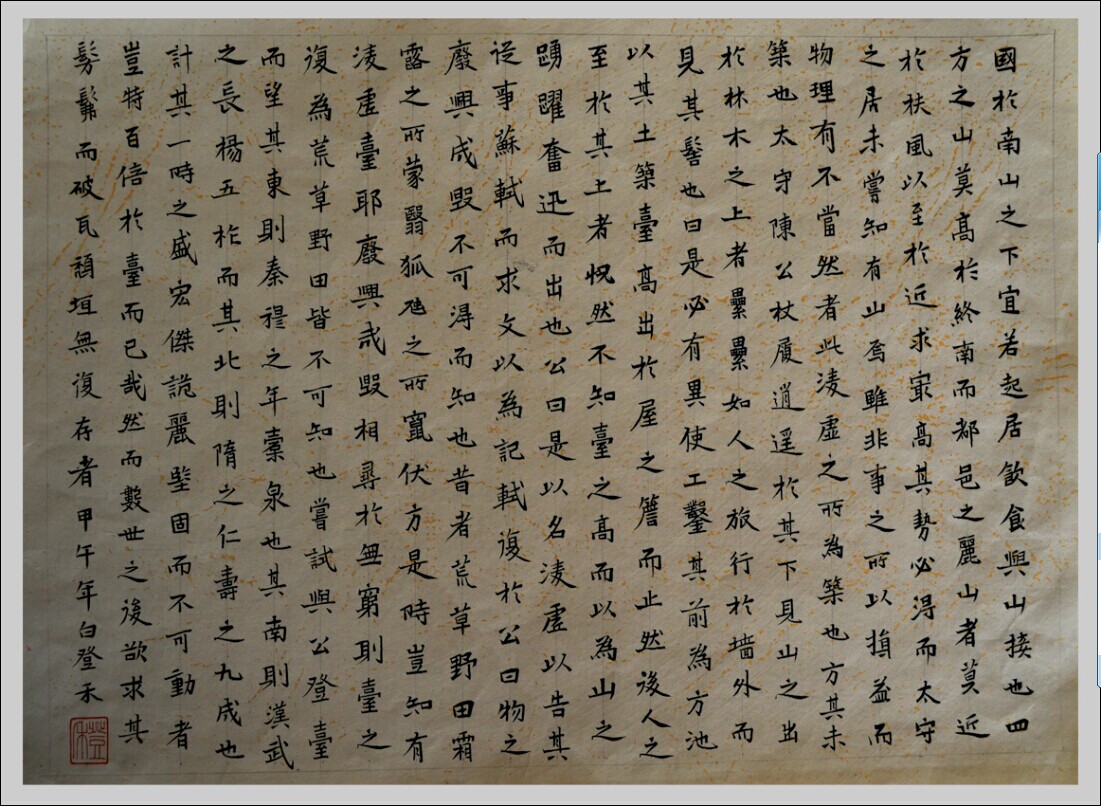 國於南山之下宜若起居飲食與山接也四
方之山莫高於終南而都邑之麗山者莫近
於扶風以至於近求冣高其勢必得而太守
之居未嘗知有山焉雖非事之所以損益而
物理有不當然者此凌虛之所為築也方其未
築也太守陳公杖屨逍遥於其下見山之出
於林木之上者纍纍如人之旅行於墻外而
見其髻也曰是必有異使工鑿其前為方池
以其土築臺高出於屋之簷而止然後人之
至於其上者怳然不知臺之高而以為山之
踴躍奮迅而出也公曰是以名凌虛以告其
從事蘇軾而求文以為記軾復於公曰物之
廢興成毀不可得而知也昔者荒草野田霜
露之所蒙翳狐虺之所竄伏方是時豈知有
凌虛臺耶廢興成毀相尋於無窮則臺之
復為荒草野田皆不可知也嘗試與公登臺
而望其東則秦穆之年橐泉也其南則漢武
之長楊五柞而其北則隋之仁壽之九成也
計其一時之盛宏傑詭麗堅固而不可動者
豈特百倍於臺而已哉然而數世之後欲求其
髣髴而破瓦頹垣無復存者甲午年白登禾